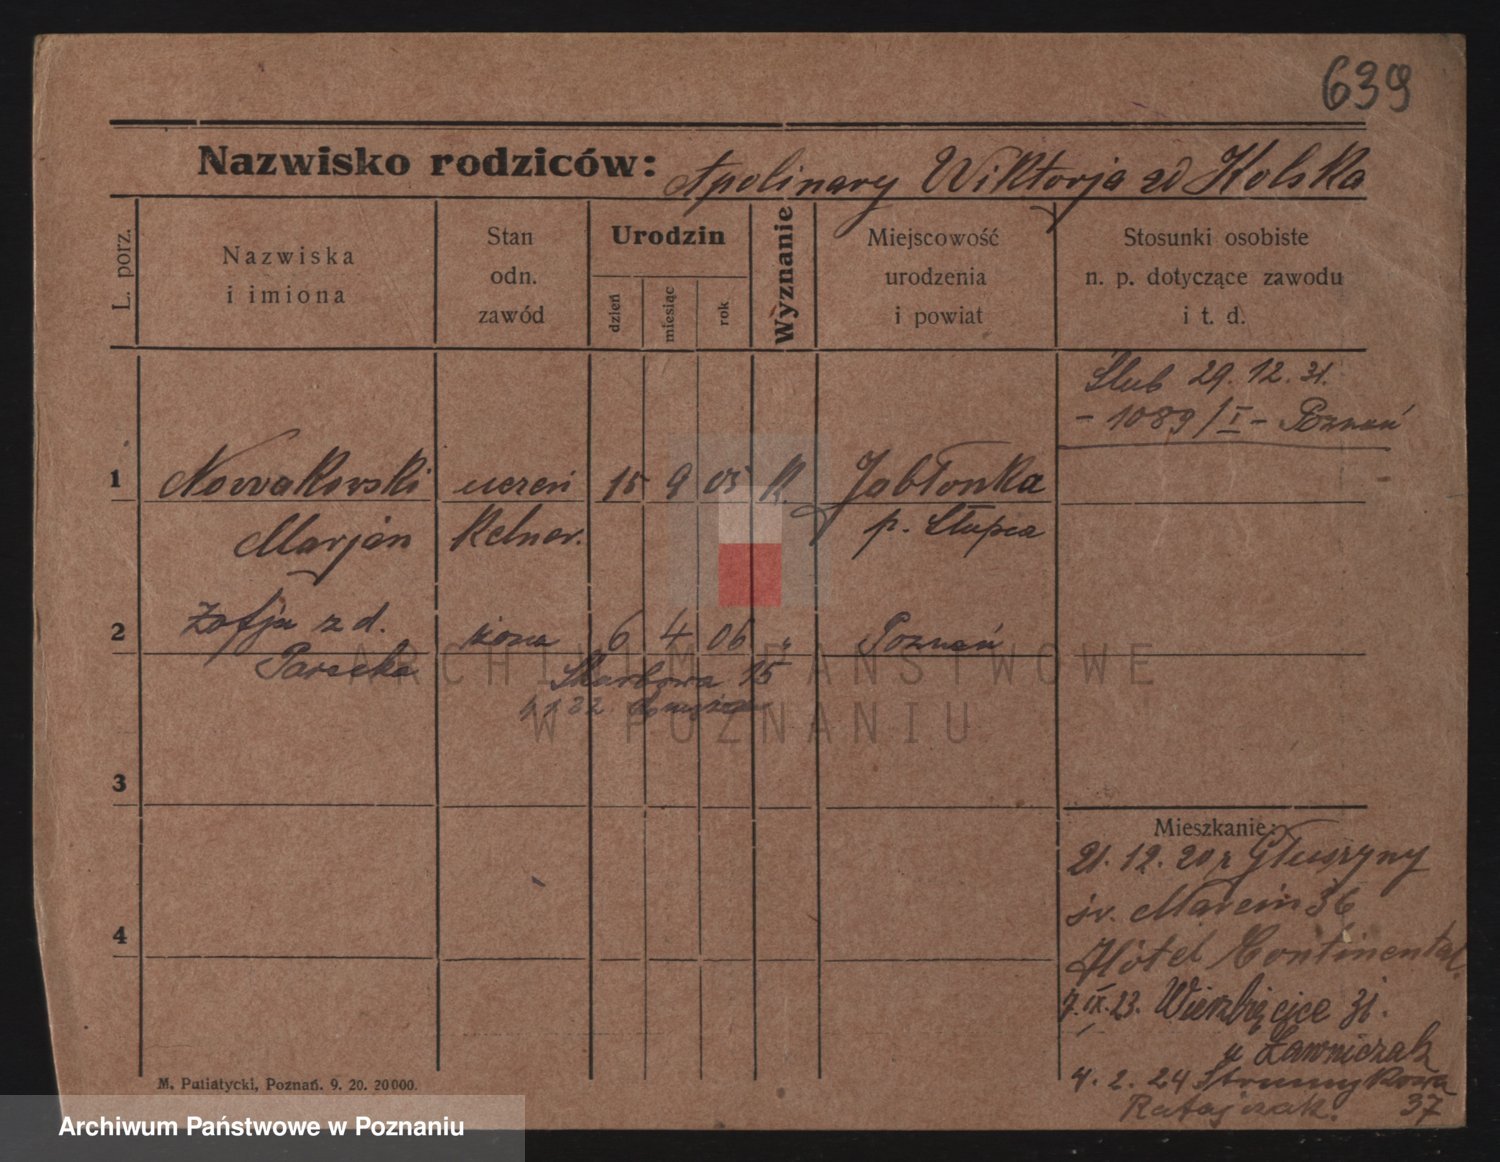 639
Nazwisko rodziców: Apolinary Wiktorja zd Kolska
L. porz.
Nazwiska
i imiona
Stan
odn.
zawód
Urodzin
dzień
miesiąc
rok
Wyznanie
Miejscowość
urodzenia
i powiat
Stosunki osobiste
n. p. dotyczące zawodu
i t. d.
Ślub 29.12.31.
- 1089/I - Poznań
1 Nowakowski uczeń 15 9 05 K. Jabłonka
Marjan Kelner. p. Słupca
2 Zofja z d. żona 6 4 06 " Poznań
Skarbowa 15
3
4
Mieszkanie:
21. 12. 20 z Głuszyny
św. Marcin 36
Hôtel Continental.
7.IX.23. Wierzbięcice 31.
u Ławniczak
4. 2. 24 Strumykowa
Ratajczak. 37
M. Putiatycki, Poznań. 9. 20. 20000.
ARCHIWUM PAŃSTWOWE
W POZNANIU
Archiwum Państwowe w Poznaniu